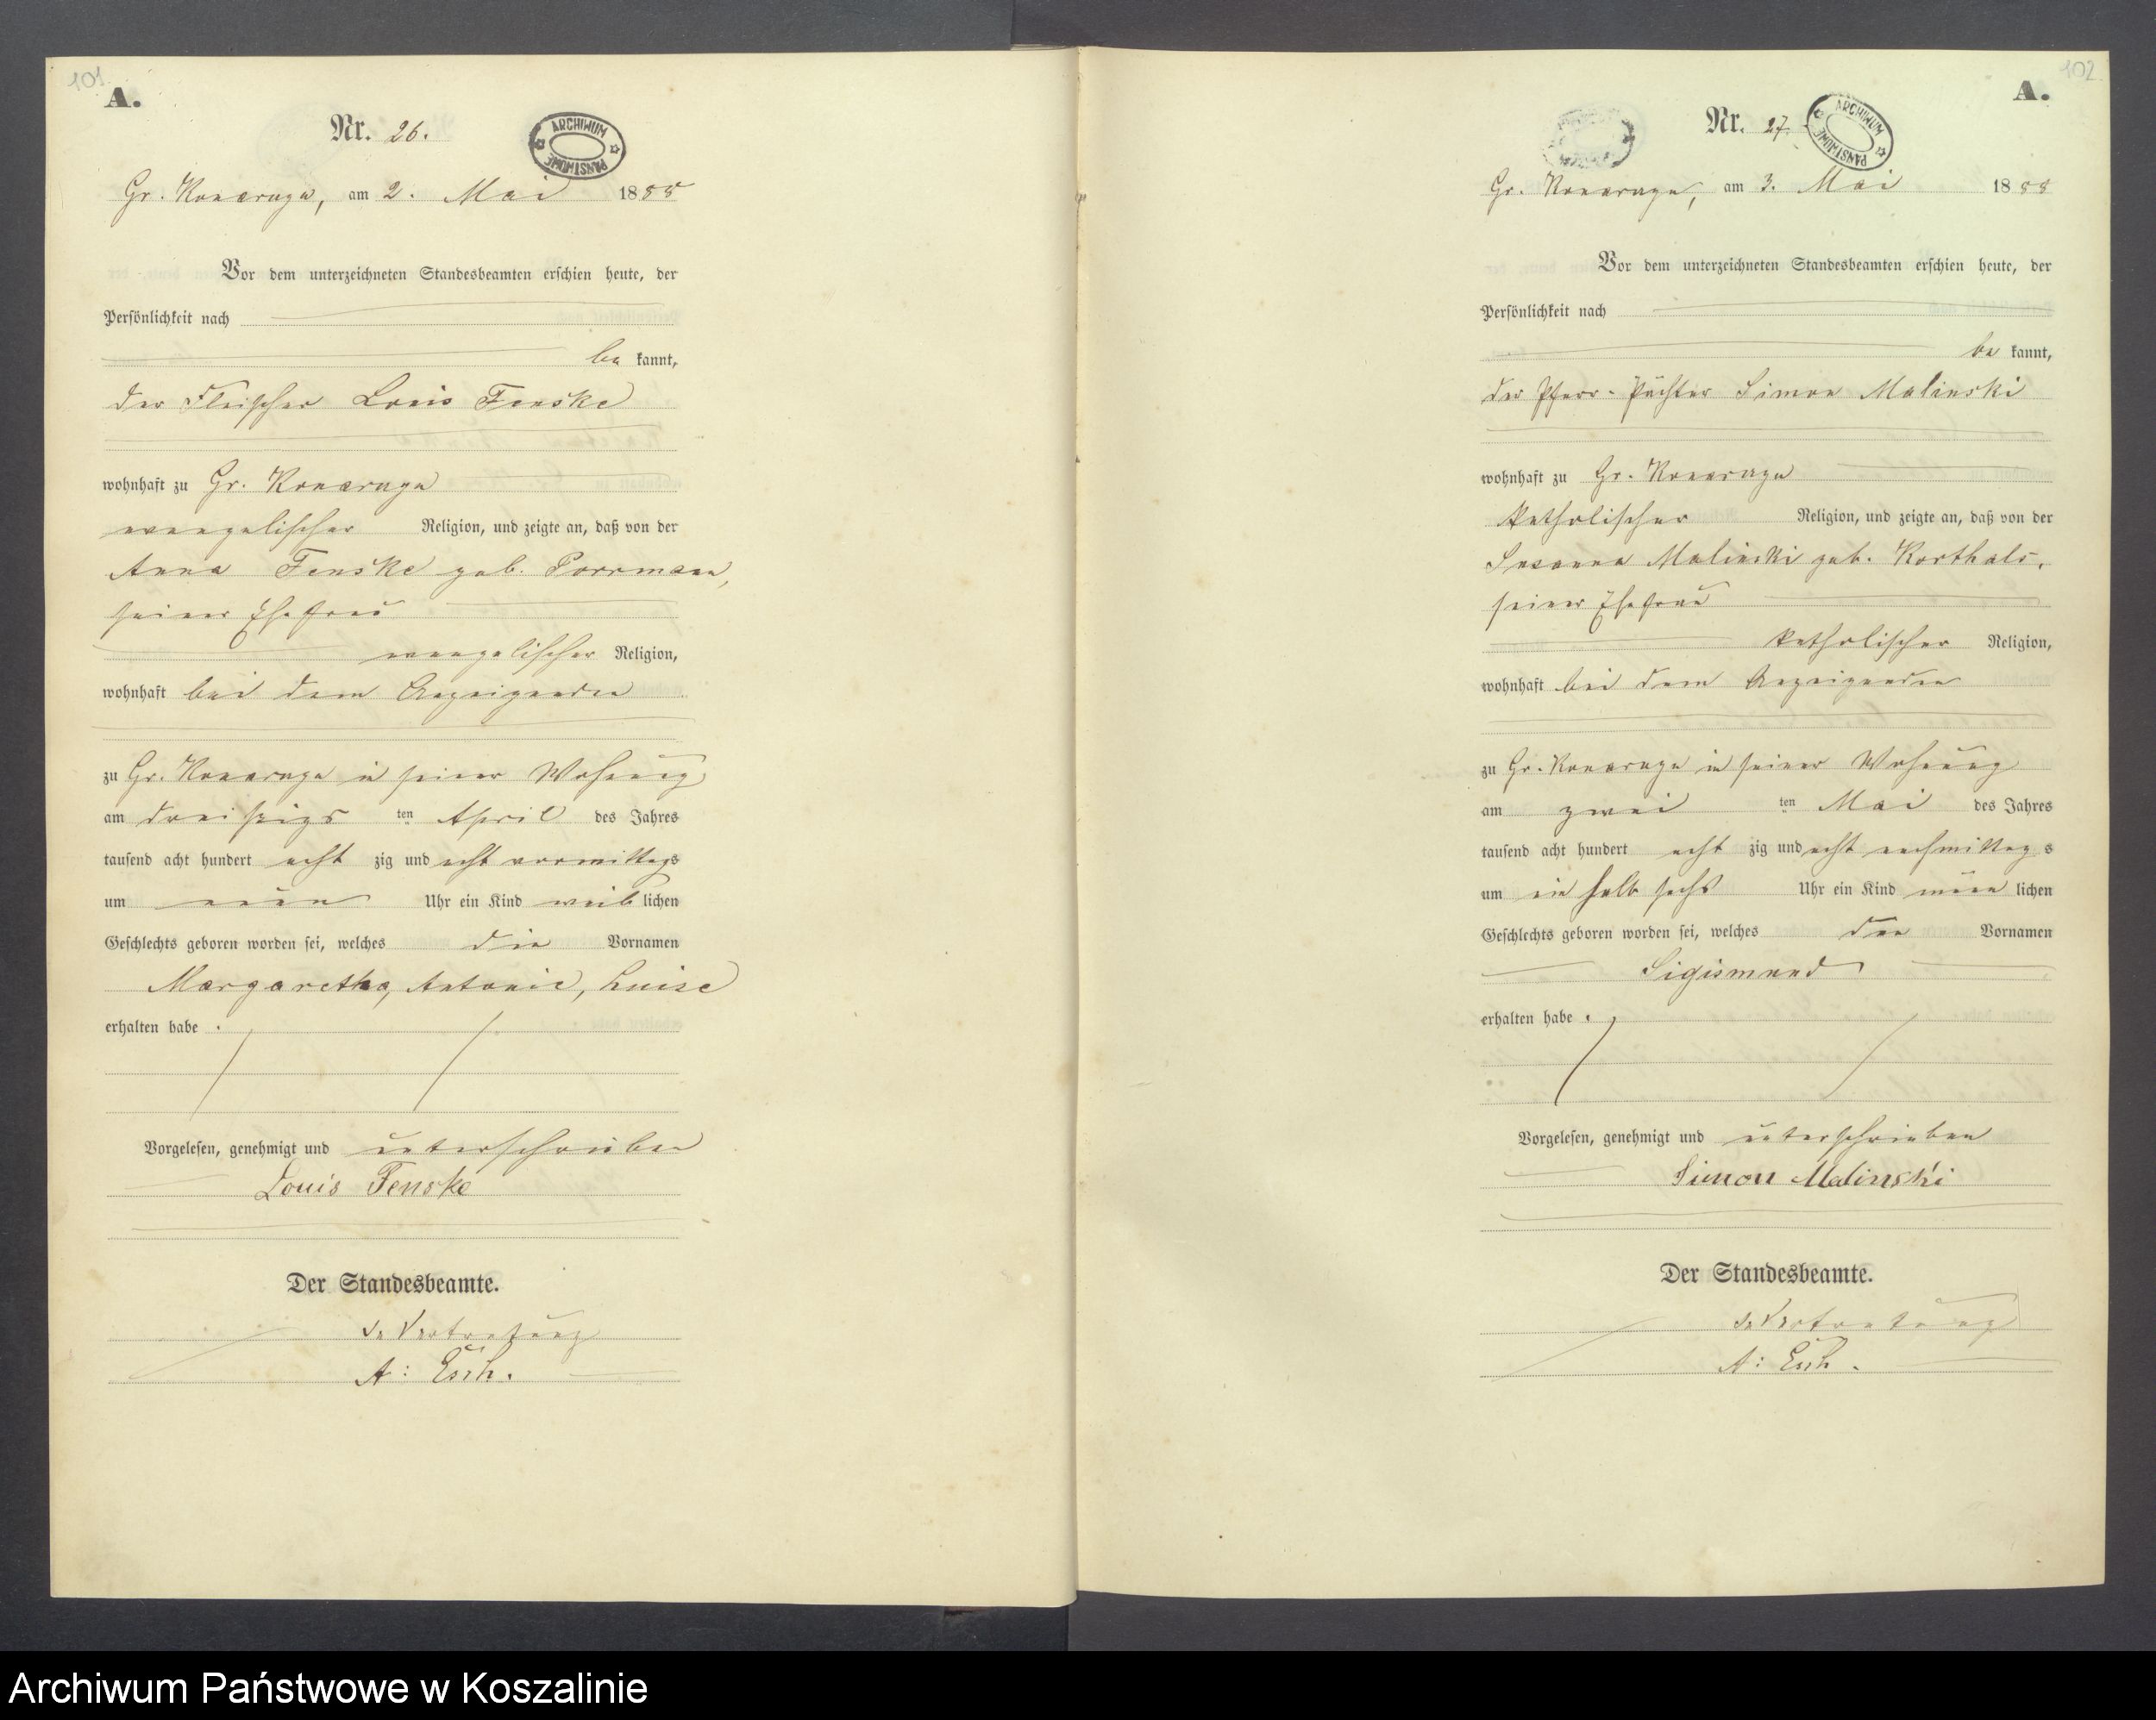 101.
A.
Nr. 26.
ARCHIWUM PAŃSTWOWE
Gr. Konarzyn, am 2. Mai 1888
Vor dem unterzeichneten Standesbeamten erschien heute, der
Persönlichkeit nach
be kannt,
der Fleischer Louis Fenske
wohnhaft zu Gr. Konarzyn
evangelischer Religion, und zeigte an, daß von der
Anna Fenske geb. Porrmann,
seiner Ehefrau
evangelischer Religion,
wohnhaft bei dem Anzeigenden
zu Gr. Konarzyn in seiner Wohnung
am dreißigs ten April des Jahres
tausend acht hundert acht zig und acht vormittags
um neun Uhr ein Kind weib lichen
Geschlechts geboren worden sei, welches die Vornamen
Margaretha, Antonie, Luise
erhalten habe.
Vorgelesen, genehmigt und unterschrieben
Louis Fenske
Der Standesbeamte.
In Vertretung
A: Esch.
102.
A.
Nr. 27.
ARCHIWUM PAŃSTWOWE
Gr. Konarzyn, am 3. Mai 1888
Vor dem unterzeichneten Standesbeamten erschien heute, der
Persönlichkeit nach
be kannt,
der Pfarr-Pächter Simon Malinski
wohnhaft zu Gr. Konarzyn
katholischer Religion, und zeigte an, daß von der
Susanna Malinski geb. Korthals,
seiner Ehefrau
katholischer Religion,
wohnhaft bei dem Anzeigenden
zu Gr. Konarzyn in seiner Wohnung
am zwei ten Mai des Jahres
tausend acht hundert acht zig und acht nachmittag s
um ein halb sechs Uhr ein Kind männ lichen
Geschlechts geboren worden sei, welches den Vornamen
Sigismund
erhalten habe.
Vorgelesen, genehmigt und unterschrieben
Simon Malinski
Der Standesbeamte.
In Vertretung
A: Esch.
Archiwum Państwowe w Koszalinie